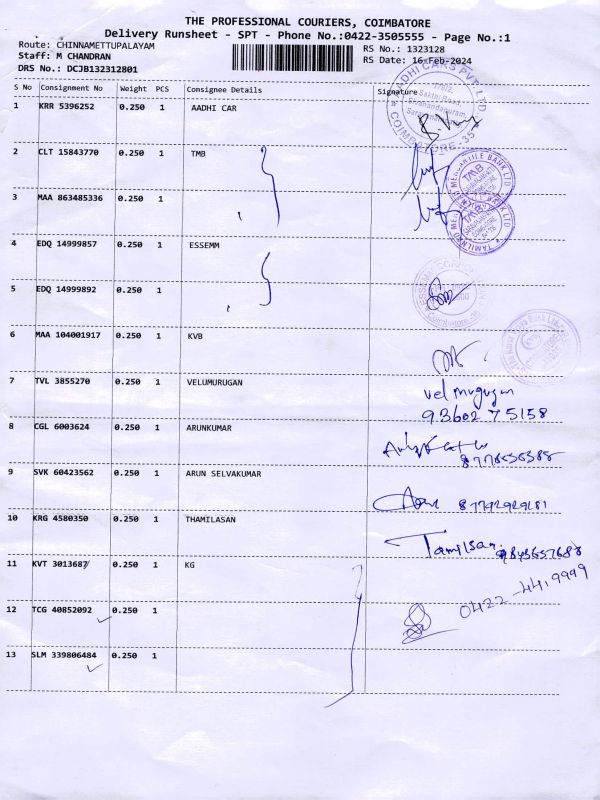 THE PROFESSIONAL COURIERS, COIMBATORE
Delivery Runsheet - SPT - Phone No.:0422-3505555 - Page No.:1
Route: CHINNAMETTUPALAYAM RS No.: 1323128
Staff: M CHANDRAN RS Date: 16-Feb-2024
DRS No.: DCJB132312801
S No Consignment No Weight PCS Consignee Details Signature
1 KRR 5396252 0.250 1 AADHI CAR
2 CLT 15843770 0.250 1 TMB
3 MAA 863485336 0.250 1
4 EDQ 14999857 0.250 1 ESSEMM
5 EDQ 14999892 0.250 1
6 MAA 104001917 0.250 1 KVB
7 TVL 3855270 0.250 1 VELUMURUGAN
velmurugan
93602 75158
8 CGL 6003624 0.250 1 ARUNKUMAR
9 SVK 60423562 0.250 1 ARUN SELVAKUMAR
10 KRG 4580350 0.250 1 THAMILASAN
Tamilsan
11 KVT 3013687 0.250 1 KG
0422-4419999
12 TCG 40852092 0.250 1
13 SLM 339806484 0.250 1